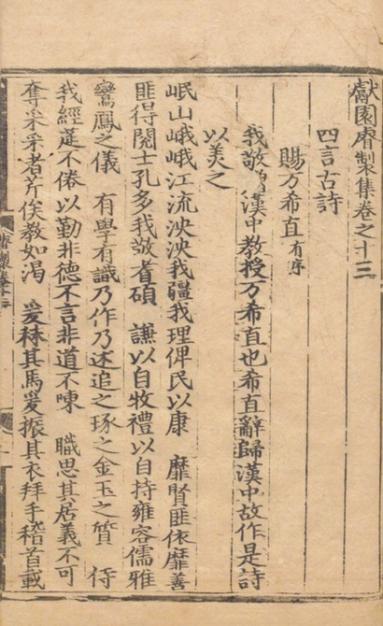 獻園睿製集卷之十三
四言古詩
賜方希直有序
我敬者漢中教授方希直也希直辭歸漢中故作是詩
以美之
岷山峨峨江流泱泱我疆我理俾民以康 靡賢匪依靡善
匪得閱士孔多我敬耆碩 謙以自牧禮以自持雍容儒雅
鸞鳳之儀 有學有識乃作乃述追之琢之金玉之質 侍
我經筵不倦以勤非德不言非道不陳 職思其居義不可
奪采采者芹俟教如渴 爰秣其馬爰振其衣拜手稽首載